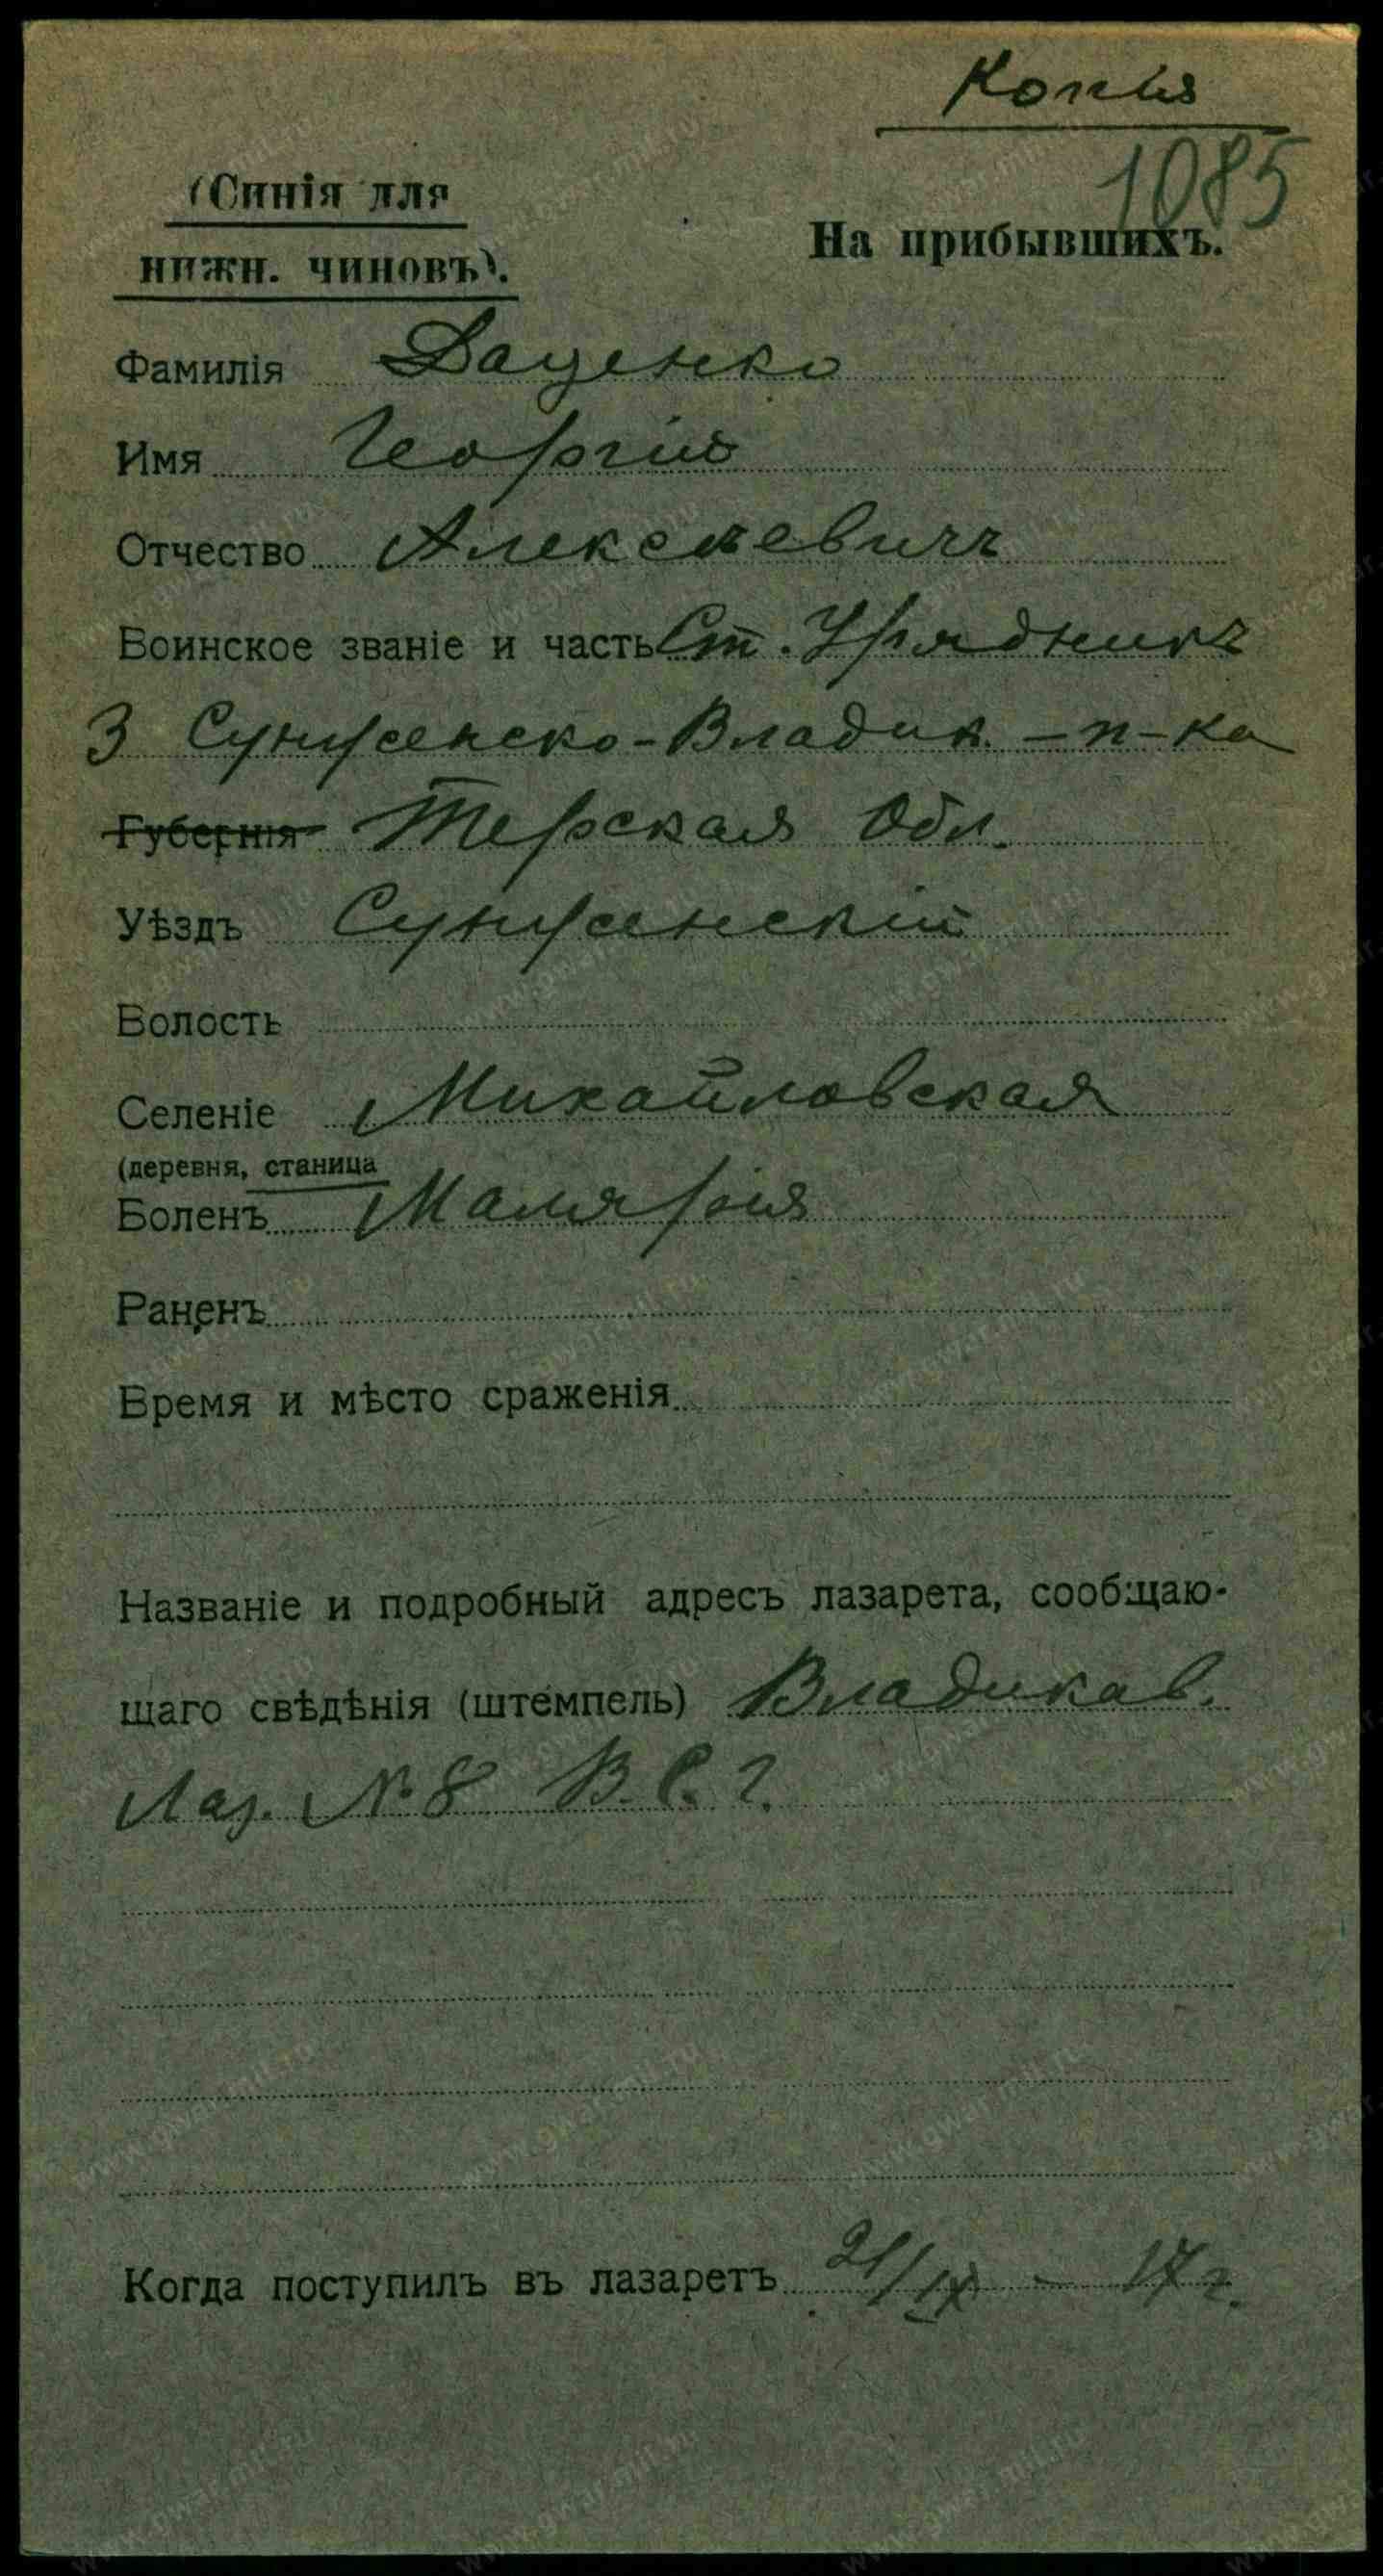 Копія
1085
(Синія для
нижн. чиновъ).
На прибывшихъ.
Фамилія Даценко
Имя Георгій
Отчество Алексѣевичъ
Воинское званіе и часть Ст. Урядникъ
3 Сунженско-Владик. - п-ка
Губернія Терская Обл.
Уѣздъ Сунженскій
Волость
Селеніе Михайловская
(деревня, станица
Боленъ Малярія
Раненъ
Время и мѣсто сраженія
Названіе и подробный адресъ лазарета, сообщаю-
щаго свѣдѣнія (штемпель) Владикав.
Лаз. № 8 В. С. Г.
Когда поступилъ въ лазаретъ 21/IX - 17 г.